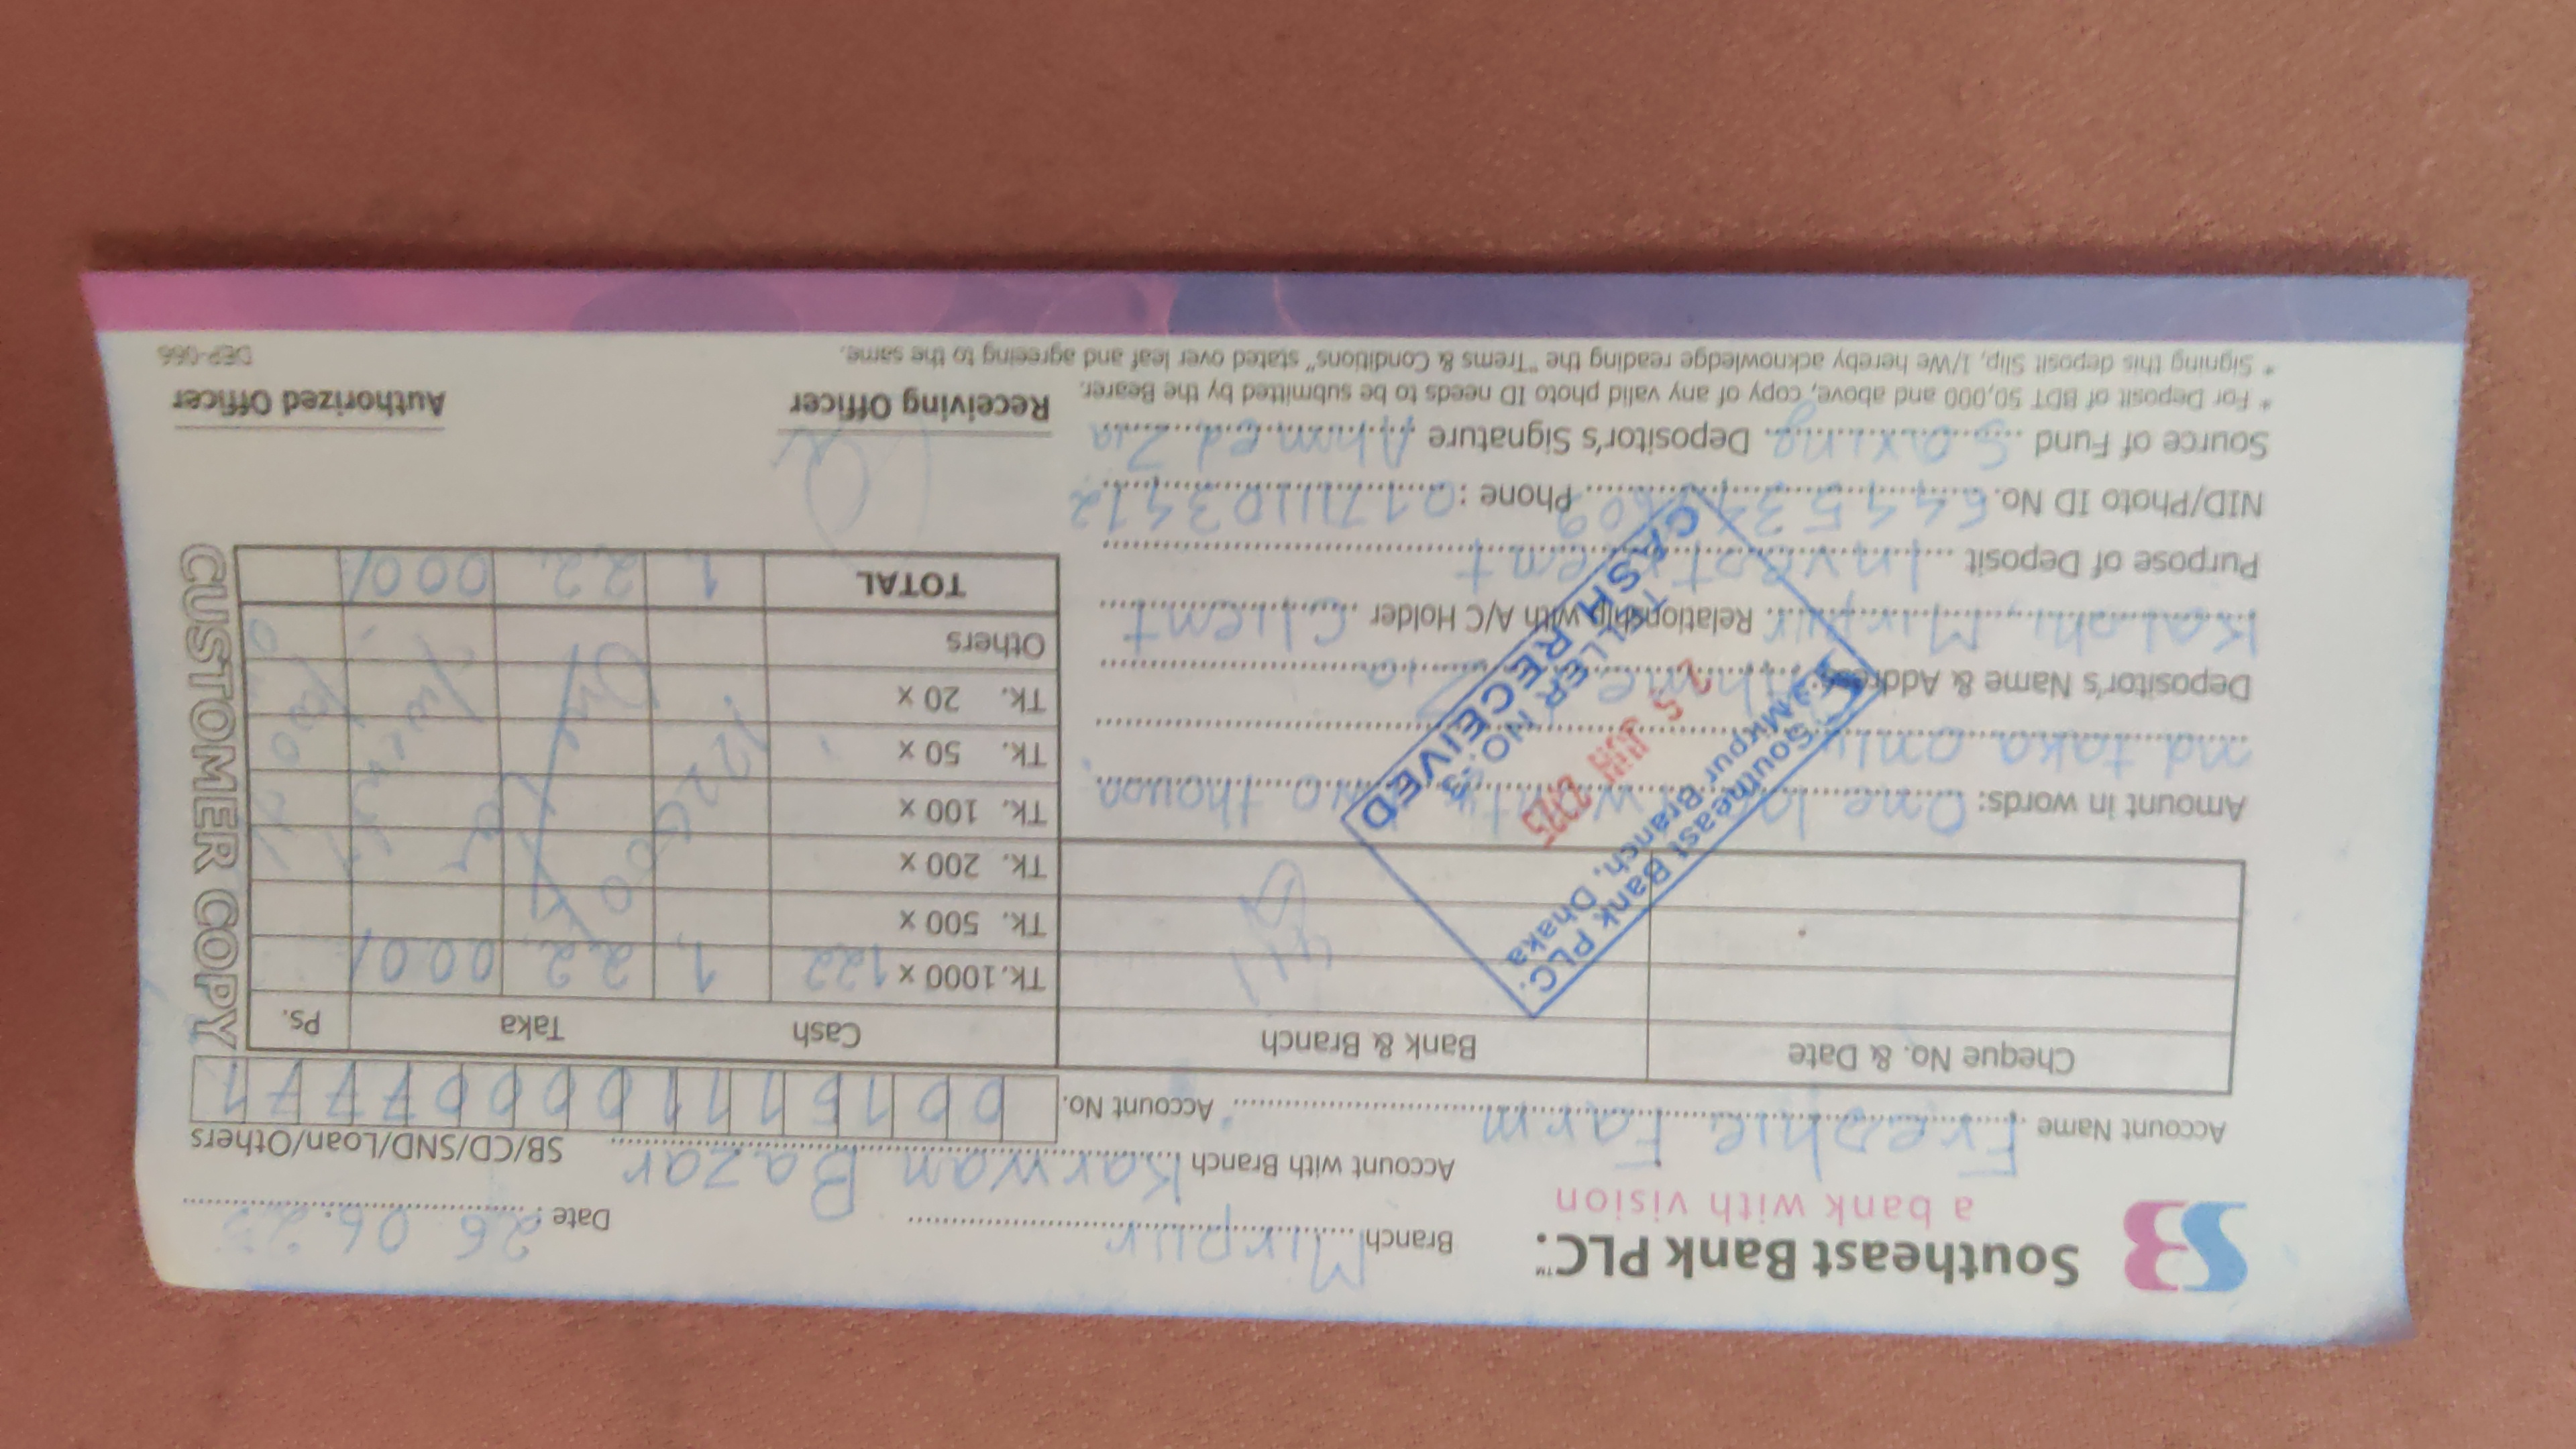 Southeast Bank PLC.™
a bank with vision
Branch Mirpur Date : 26.06.25
Account with Branch Karwan Bazar SB/CD/SND/Loan/Others
Account Name Freshie Farm Account No.
Cheque No. & Date Bank & Branch Cash Taka Ps.
Tk.1000 x 122 1, 22, 000/
Tk. 500 x
Tk. 200 x
Tk. 100 x
Tk. 50 x
Tk. 20 x
Others
TOTAL 1, 22, 000/
Amount in words: One thousa
nd taka only
Depositor's Name & Address: Zia
Kalshi, Mirpur Relationship with A/C Holder Client
Purpose of Deposit Investment
NID/Photo ID No. Phone :
Source of Fund Saving Depositor's Signature Ahmed Zia
* For Deposit of BDT 50,000 and above, copy of any valid photo ID needs to be submitted by the Bearer.
* Signing this deposit Slip, I/We hereby acknowledge reading the "Trems & Conditions" stated over leaf and agreeing to the same.
Receiving Officer Authorized Officer
DEP-066
CUSTOMER COPY
Southeast Bank PLC.
Mirpur Branch, Dhaka
TELLER NO.
CASH RECEIVED